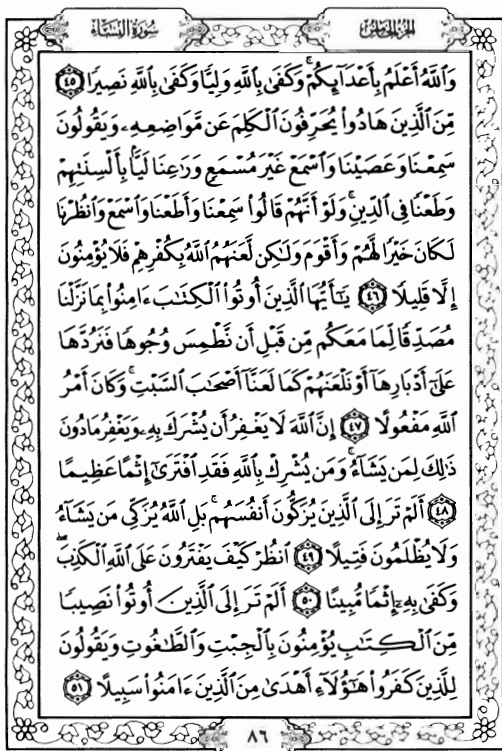 الجزء الخامس
سورة النساء
وَٱللَّهُ أَعْلَمُ بِأَعْدَآئِكُمْ ۚ وَكَفَىٰ بِٱللَّهِ وَلِيًّا وَكَفَىٰ بِٱللَّهِ نَصِيرًا ﴿٤٥﴾
مِّنَ ٱلَّذِينَ هَادُوا۟ يُحَرِّفُونَ ٱلْكَلِمَ عَن مَّوَاضِعِهِۦ وَيَقُولُونَ
سَمِعْنَا وَعَصَيْنَا وَٱسْمَعْ غَيْرَ مُسْمَعٍ وَرَٰعِنَا لَيًّۢا بِأَلْسِنَتِهِمْ
وَطَعْنًا فِى ٱلدِّينِ ۚ وَلَوْ أَنَّهُمْ قَالُوا۟ سَمِعْنَا وَأَطَعْنَا وَٱسْمَعْ وَٱنظُرْنَا
لَكَانَ خَيْرًا لَّهُمْ وَأَقْوَمَ وَلَٰكِن لَّعَنَهُمُ ٱللَّهُ بِكُفْرِهِمْ فَلَا يُؤْمِنُونَ
إِلَّا قَلِيلًا ﴿٤٦﴾ يَٰٓأَيُّهَا ٱلَّذِينَ أُوتُوا۟ ٱلْكِتَٰبَ ءَامِنُوا۟ بِمَا نَزَّلْنَا
مُصَدِّقًا لِّمَا مَعَكُم مِّن قَبْلِ أَن نَّطْمِسَ وُجُوهًا فَنَرُدَّهَا
عَلَىٰٓ أَدْبَارِهَآ أَوْ نَلْعَنَهُمْ كَمَا لَعَنَّآ أَصْحَٰبَ ٱلسَّبْتِ ۚ وَكَانَ أَمْرُ
ٱللَّهِ مَفْعُولًا ﴿٤٧﴾ إِنَّ ٱللَّهَ لَا يَغْفِرُ أَن يُشْرَكَ بِهِۦ وَيَغْفِرُ مَا دُونَ
ذَٰلِكَ لِمَن يَشَآءُ ۚ وَمَن يُشْرِكْ بِٱللَّهِ فَقَدِ ٱفْتَرَىٰٓ إِثْمًا عَظِيمًا
﴿٤٨﴾ أَلَمْ تَرَ إِلَى ٱلَّذِينَ يُزَكُّونَ أَنفُسَهُم ۚ بَلِ ٱللَّهُ يُزَكِّى مَن يَشَآءُ
وَلَا يُظْلَمُونَ فَتِيلًا ﴿٤٩﴾ ٱنظُرْ كَيْفَ يَفْتَرُونَ عَلَى ٱللَّهِ ٱلْكَذِبَ ۖ
وَكَفَىٰ بِهِۦٓ إِثْمًا مُّبِينًا ﴿٥٠﴾ أَلَمْ تَرَ إِلَى ٱلَّذِينَ أُوتُوا۟ نَصِيبًا
مِّنَ ٱلْكِتَٰبِ يُؤْمِنُونَ بِٱلْجِبْتِ وَٱلطَّٰغُوتِ وَيَقُولُونَ
لِلَّذِينَ كَفَرُوا۟ هَٰٓؤُلَآءِ أَهْدَىٰ مِنَ ٱلَّذِينَ ءَامَنُوا۟ سَبِيلًا ﴿٥١﴾
٨٦